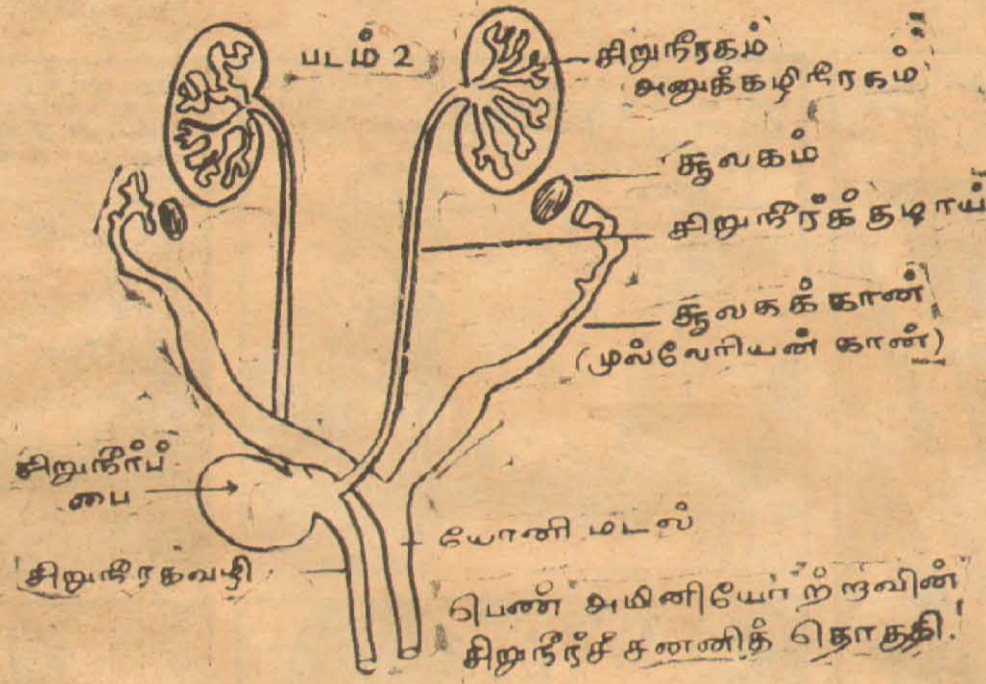 படம் 2
சிறுநீரகம்
அனுக்கழிநீரகம்
சூலகம்
சிறுநீர்க் குழாய்
சூலகக் கான்
(முல்லேரியன் கான்)
சிறுநீர்ப்
பை
யோனி மடல்
சிறுநீரகவழி
பெண் அமினியோற்றாவின்
சிறுநீர்ச் சனனித் தொகுதி.